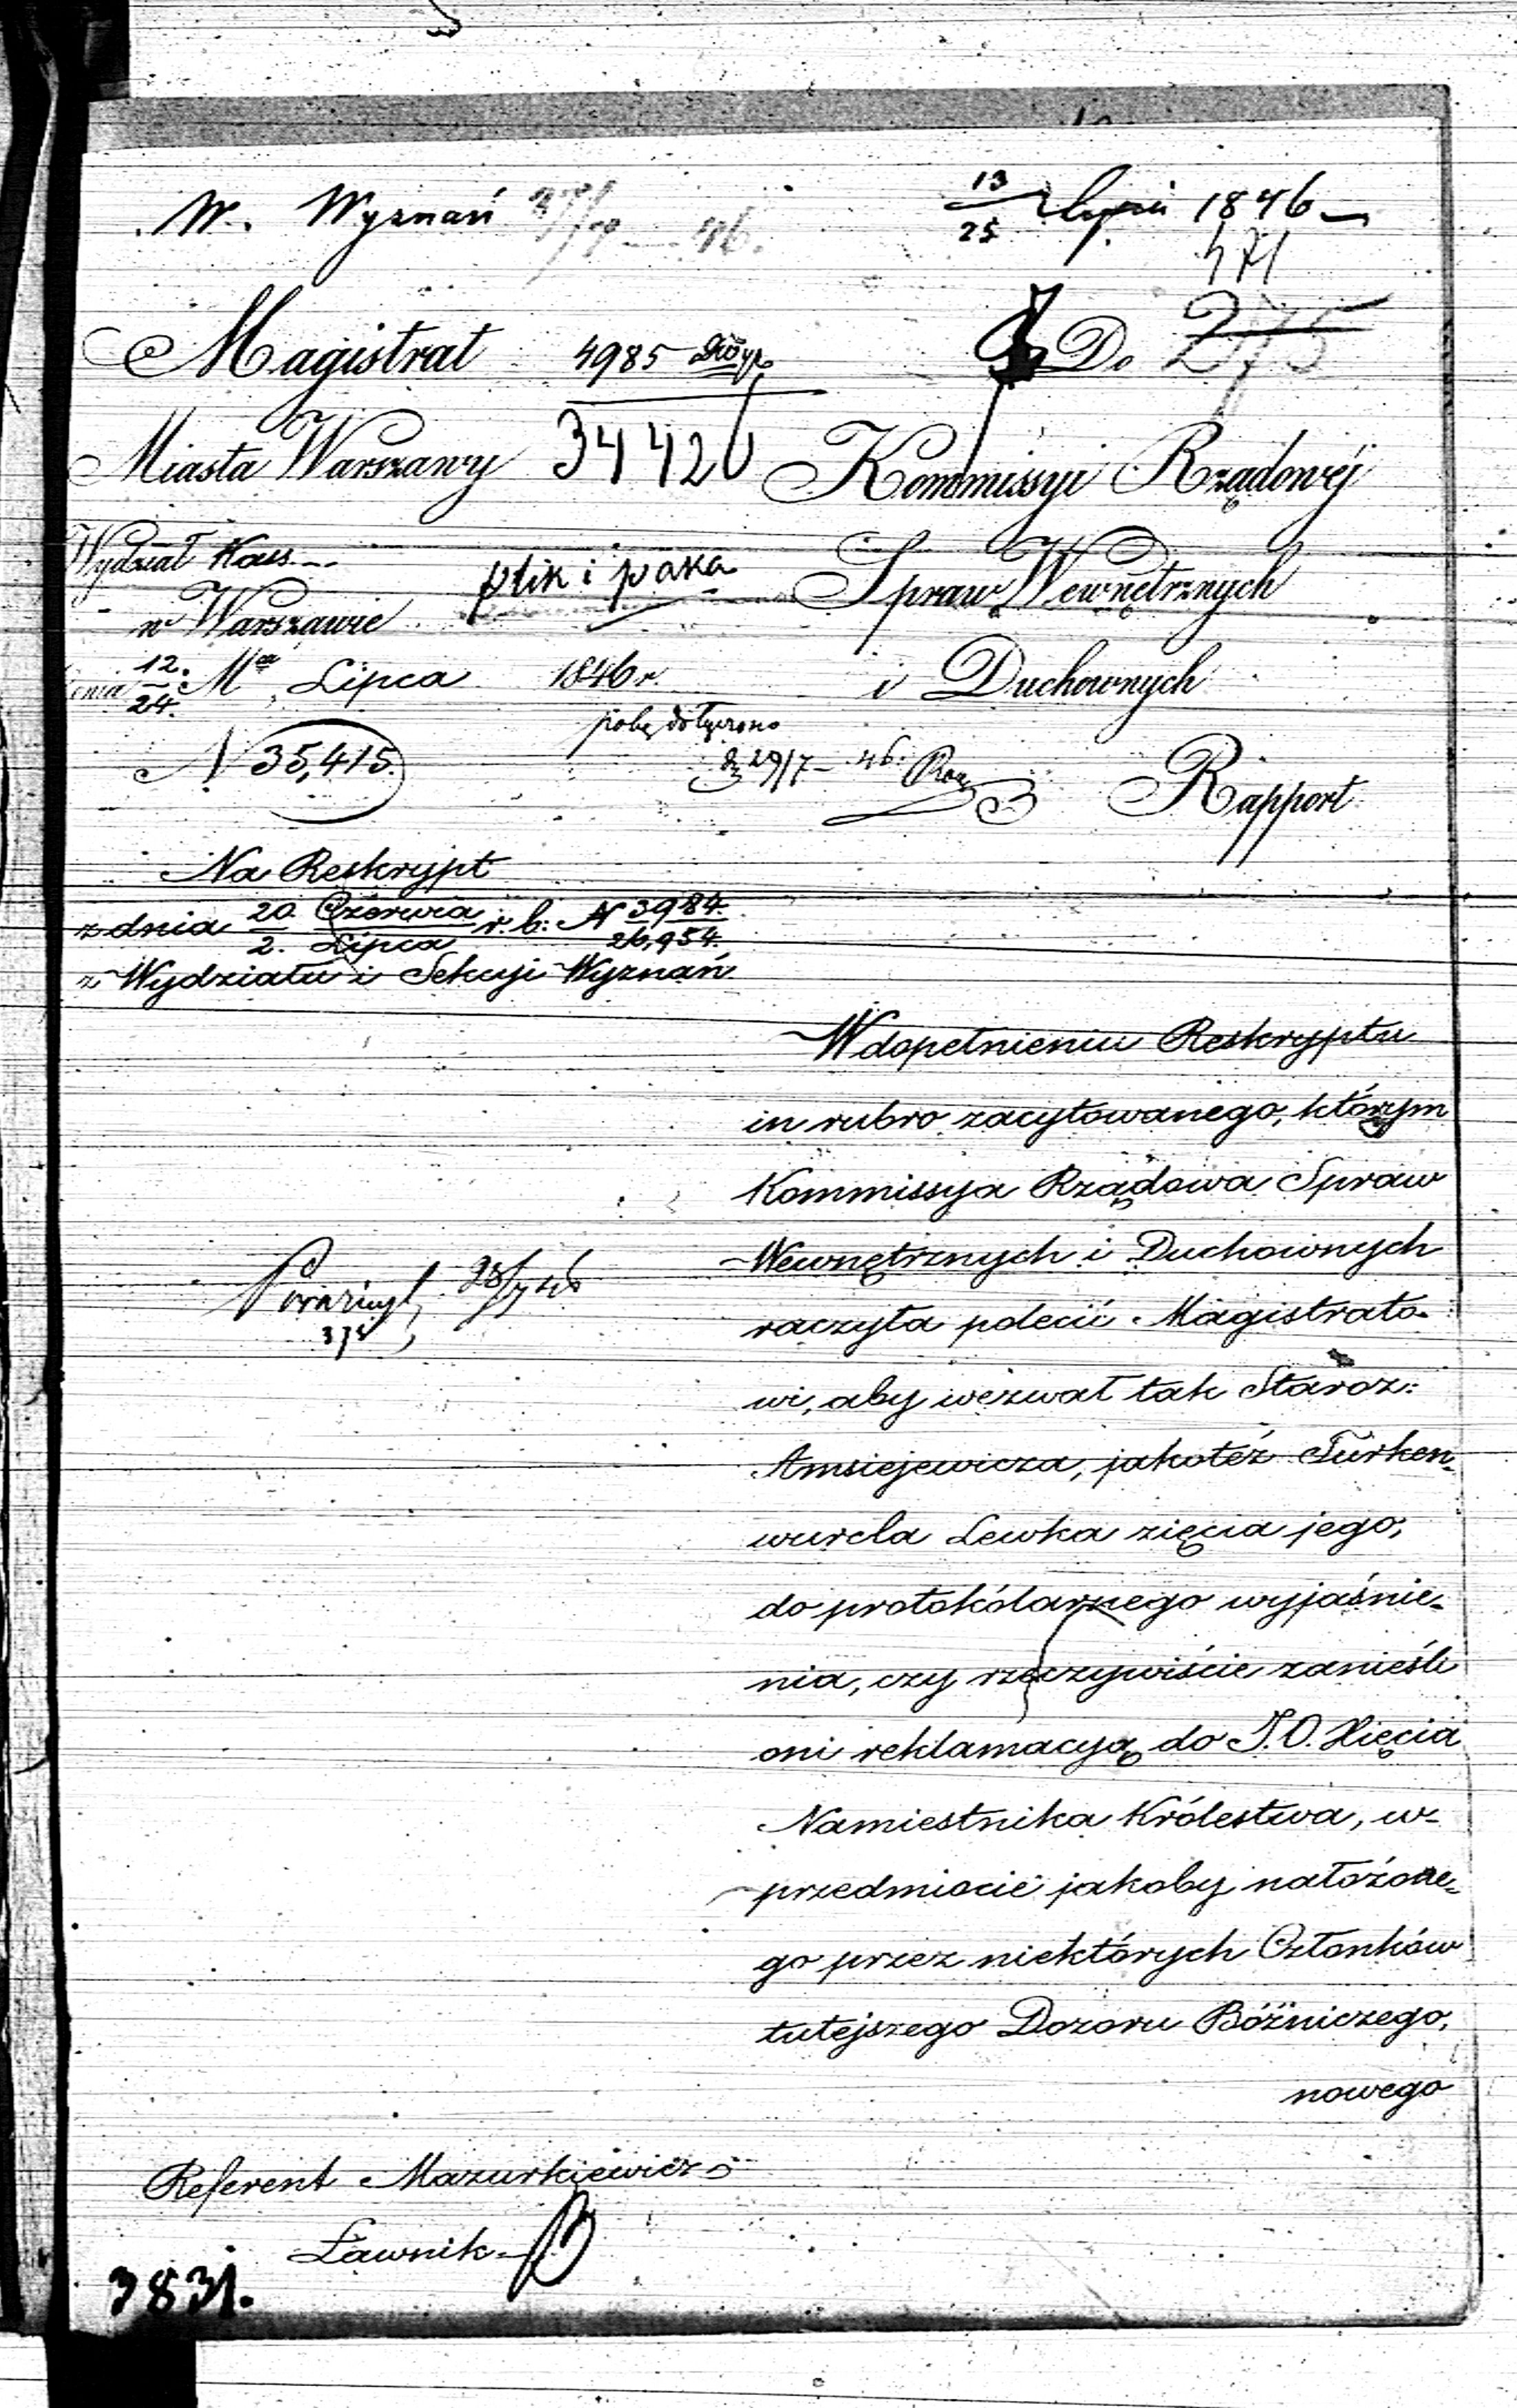 W. Wyznań
13/25 lipca 1846
471
275
Magistrat
4985
Do
Miasta Warszawy
34420
Kommissyi Rządowéj
Wydział Kass
plik i paka
Spraw Wewnętrznych
w Warszawie
dnia 12./24. Mca Lipca 1846 r.
i Duchownych
N 35,415.
29/7 - 46.
Rapport
Na Reskrypt
z dnia 20. Czerwca/2. Lipca r. b: N 3984./26,954.
z Wydziału i Sekcyi Wyznań.
W dopełnieniu Reskryptu
in rubro zacytowanego, którym
Kommissya Rządowa Spraw
Wewnętrznych i Duchownych
raczyła polecić Magistrato-
wi, aby wezwał tak Staroz:
Amsiejewicza, jakotéż Turken-
wurcla Lewka zięcia jego,
do protokólarnego wyjaśnie-
nia, czy rzeczywiście zanieśli
oni reklamacyą do J. O. Xięcia
Namiestnika Królestwa, w
przedmiocie jakoby nałożone-
go przez niektórych Członków
tutejszego Dozoru Bóźniczego,
nowego
Referent Mazurkiewicz
Ławnik
3831.